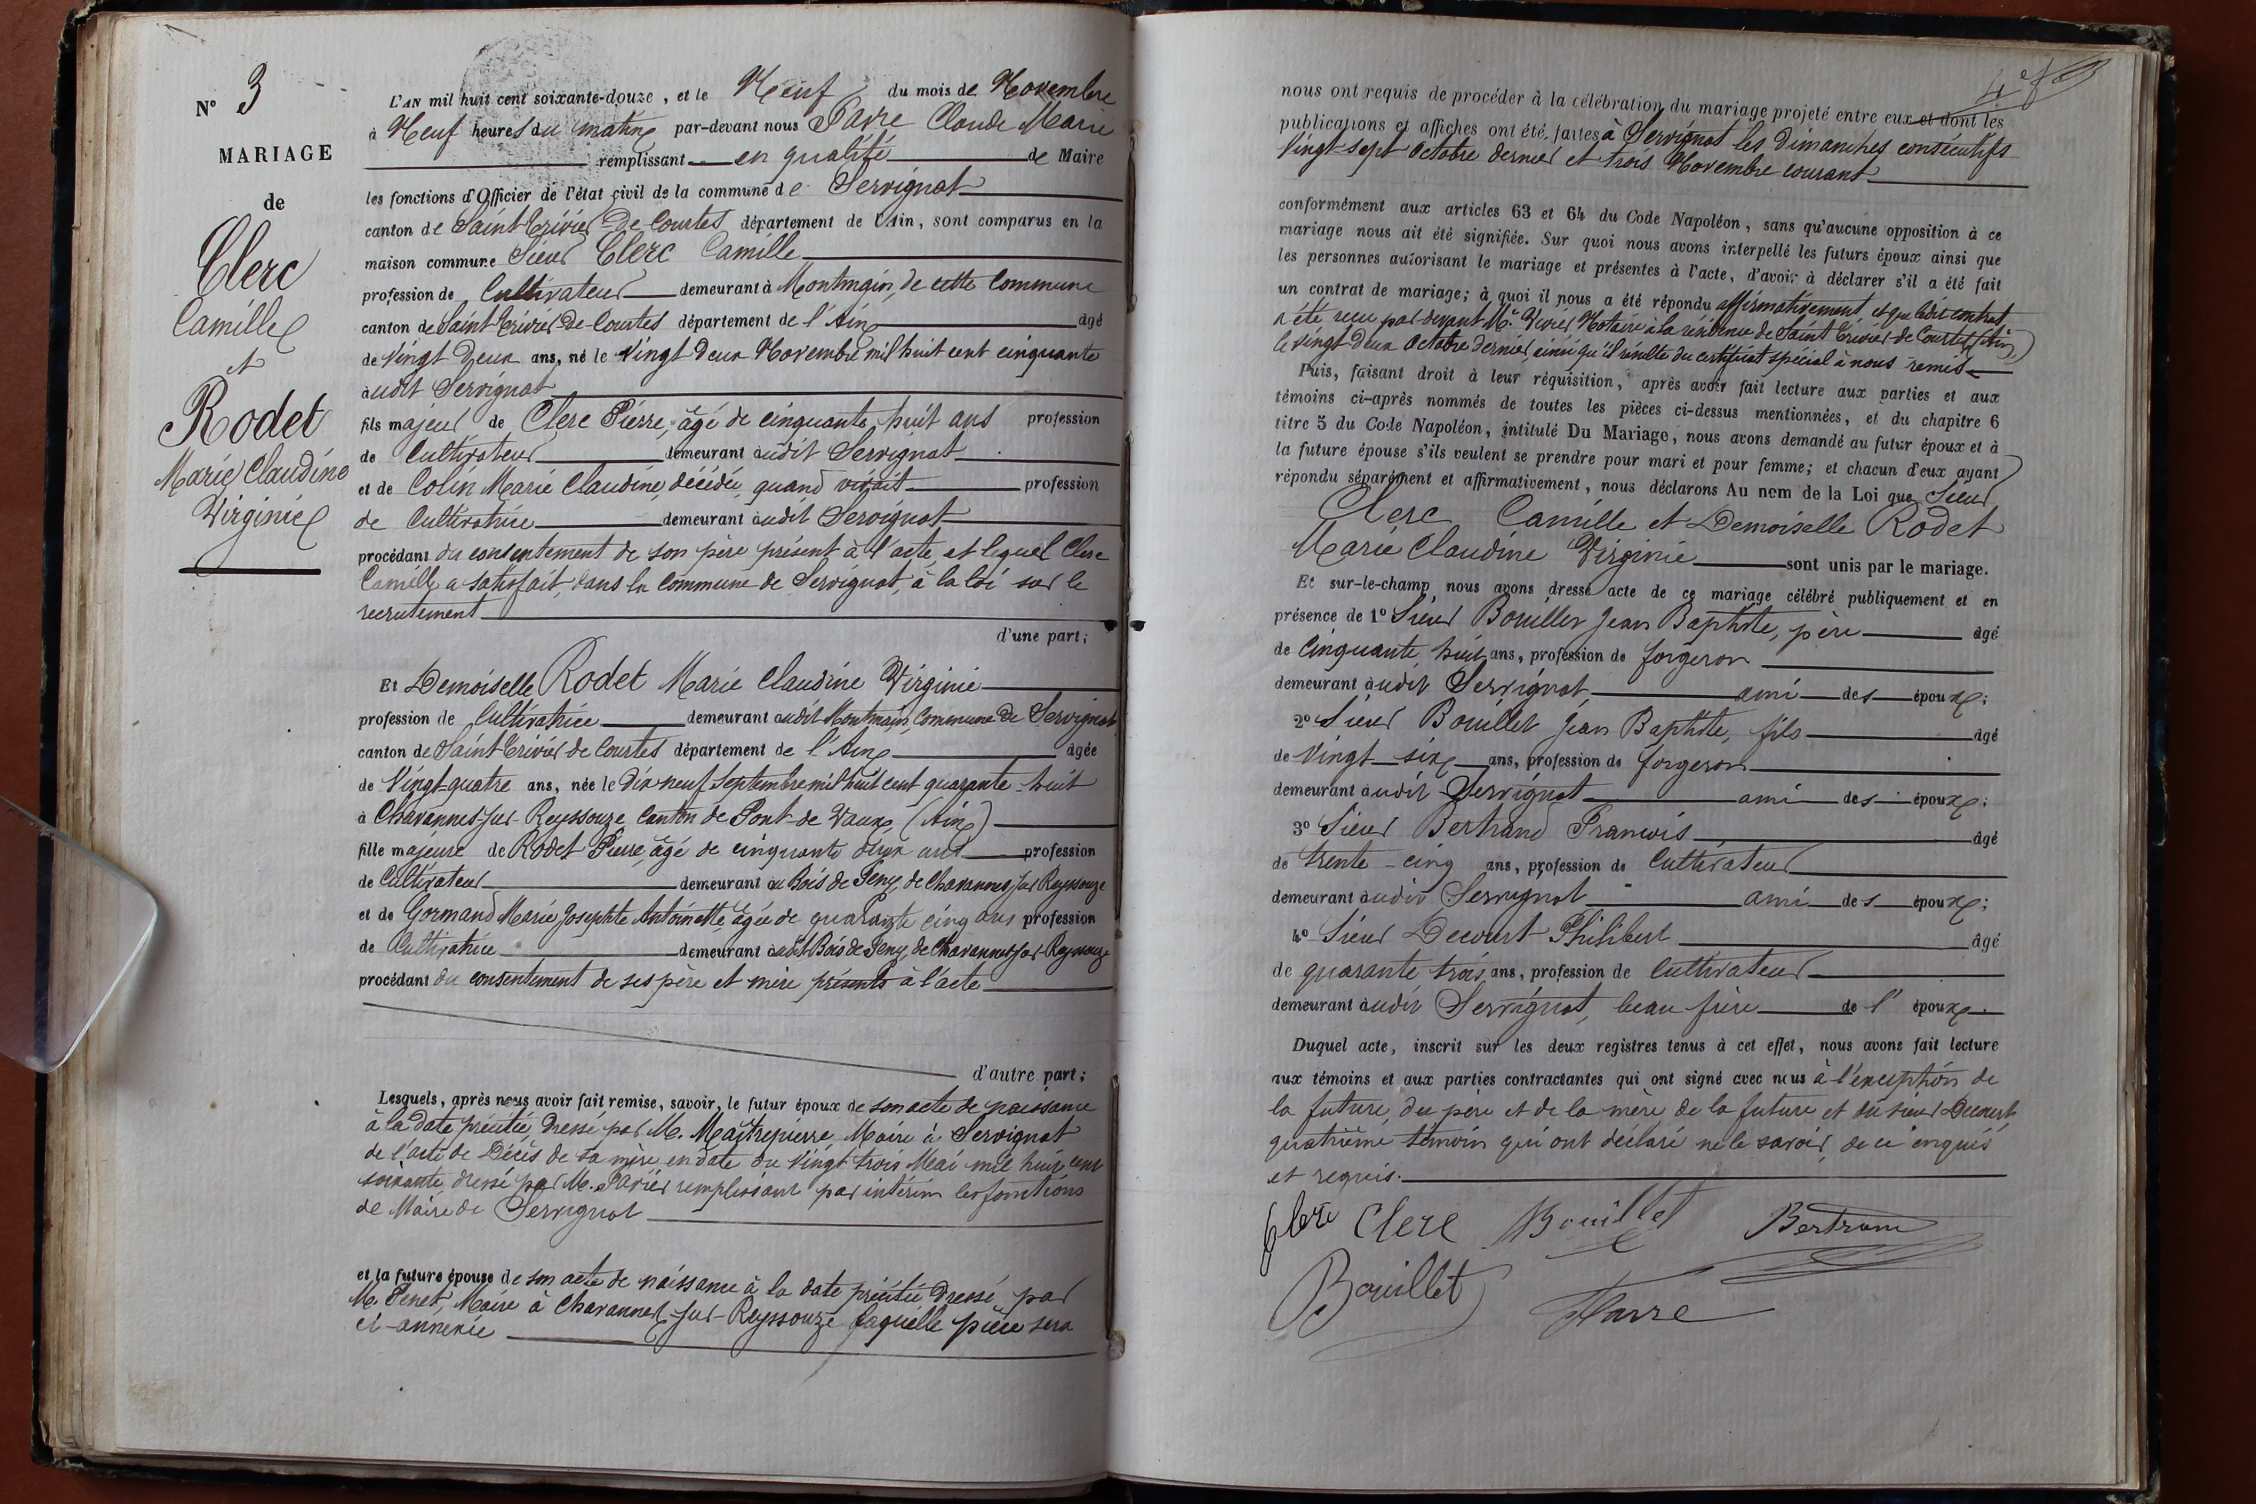 N° 3
MARIAGE
de
Clerc
Camille
et
Rodet
Marie Claudine
Virginie
L'AN mil huit cent soixante-douze, et le Neuf du mois de Novembre
à Neuf heures du matin par-devant nous Favre Claude Marie
remplissant en qualité de Maire
les fonctions d'Officier de l'état civil de la commune de Servignat
canton de Saint Trivier-de-Courtes département de l'Ain, sont comparus en la
maison commune Sieur Clerc Camille
profession de Cultivateur demeurant à Montmain, de cette Commune
canton de Saint Trivier-de-Courtes département de l'Ain âgé
de Vingt Deux ans, né le Vingt Deux Novembre mil huit cent cinquante
audit Servignat
fils majeur de Clerc Pierre, âgé de cinquante huit ans profession
de Cultivateur demeurant audit Servignat
et de Colin Marie Claudine, décédée, quand vivait profession
de Cultivatrice demeurant audit Servignat
procédant du consentement de son père présent à l'acte, et lequel Clerc
Camille a satisfait, dans la commune de Servignat, à la loi sur le
recrutement
d'une part;
Et Demoiselle Rodet Marie Claudine Virginie
profession de Cultivatrice demeurant audit Montmain, Commune de Servignat
canton de Saint Trivier de Courtes département de l'Ain âgée
de Vingt-quatre ans, née le Dix neuf Septembre mil huit cent quarante-huit
à Chavannes-sur Reyssouze Canton de Pont-de Vaux (Ain)
fille majeure de Rodet Pierre, âgé de cinquante deux ans profession
de Cultivateur demeurant au Bois de Feny, de Chavannes sur Reyssouze
et de Gormand Marie Josephte Antoinette, âgée de quarante cinq ans profession
de Cultivatrice demeurant audit Bois de Feny, de Chavannes sur Reyssouze
procédant du consentement de ses père et mère présents à l'acte
d'autre part;
Lesquels, après nous avoir fait remise, savoir, le futur époux de son acte de naissance
à la date précitée, dressé par M. Maîtrepierre, Maire à Servignat
de l'acte de Décès de sa mère, en date du Vingt trois Mai mil huit cent
soixante, dressé par M. remplissant par intérim les fonctions
de Maire de Servignat
et la future épouse de son acte de naissance à la date précitée dressé par
M. Penet, Maire à Chavannes-sur-Reyssouze laquelle pièce sera
ci-annexée
nous ont requis de procéder à la célébration du mariage projeté entre eux et dont les
publications et affiches ont été faites à Servignat les Dimanches consécutifs
Vingt-sept Octobre dernier et trois Novembre courant
conformément aux articles 63 et 64 du Code Napoléon, sans qu'aucune opposition à ce
mariage nous ait été signifiée. Sur quoi nous avons interpellé les futurs époux ainsi que
les personnes autorisant le mariage et présentes à l'acte, d'avoir à déclarer s'il a été fait
un contrat de mariage; à quoi il nous a été répondu affirmativement, et que ledit contrat
a été reçu par devant Me Vivier Notaire à la résidence de Saint Trivier-de-Courtes (Ain)
le vingt-deux Octobre dernier, ainsi qu'il résulte du certificat spécial à nous remis
Puis, faisant droit à leur réquisition, après avoir fait lecture aux parties et aux
témoins ci-après nommés de toutes les pièces ci-dessus mentionnées, et du chapitre 6
titre 5 du Code Napoléon, intitulé Du Mariage, nous avons demandé au futur époux et à
la future épouse s'ils veulent se prendre pour mari et pour femme; et chacun d'eux ayant
répondu séparément et affirmativement, nous déclarons Au nom de la Loi que Sieur
Clerc Camille et Demoiselle Rodet
Marie Claudine Virginie sont unis par le mariage.
Et sur-le-champ, nous avons dressé acte de ce mariage célébré publiquement et en
présence de 1° Sieur Bouillet Jean Baptiste, père âgé
de Cinquante huit ans, profession de forgeron
demeurant audit Servignat, ami des époux;
2° Sieur Bouillet Jean Baptiste, fils âgé
de Vingt-six ans, profession de forgeron
demeurant audit Servignat ami des époux;
3° Sieur Bertrand François âgé
de trente-cinq ans, profession de Cultivateur
demeurant audit Servignat ami des époux;
4° Sieur Decourt Philibert âgé
de quarante trois ans, profession de Cultivateur
demeurant audit Servignat, beau frère de l'époux
Duquel acte, inscrit sur les deux registres tenus à cet effet, nous avons fait lecture
aux témoins et aux parties contractantes qui ont signé avec nous à l'exception de
la future, du père et de la mère de la future et du sieur Decourt,
quatrième témoin qui ont déclaré ne le savoir, de ce enquis
et requis.
Clerc Clerc Bouillet Bertrand
Bouillet Favre